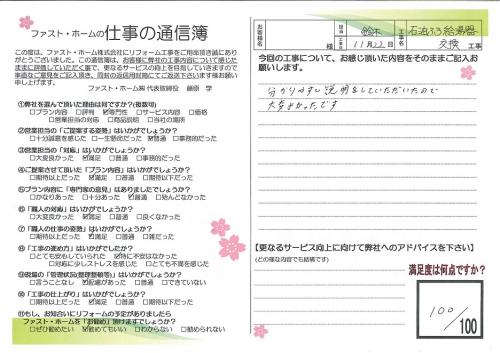 ファスト・ホームの仕事の通信簿
この度は、ファスト・ホーム株式会社にリフォーム工事をご用命頂き誠にあり
がとうございました。この通信簿は、お客様が弊社の工事内容について感じた
ままに評価していただく事で、更なるサービスの向上を目指していきますので
率直なご意見をご記入頂き、同封の返信用封筒にてご送付下さいます様お願い
申し上げます。
ファスト・ホーム㈱ 代表取締役 藤原 学
①弊社を選んで頂いた理由は何ですか?(複数可)
□プラン内容 □評判 ☑専門性 □サービス内容 □価格
□営業担当の対応 □商品説明 □当社の場所
②営業担当の「ご提案する姿勢」はいかがでしょうか?
□十分誠意を感じた □一生懸命だった ☑普通 □事務的だった
③営業担当の「対応」はいかがでしょうか?
□大変良かった ☑満足 □普通 □事務的だった
④ご提案させて頂いた「プラン内容」はいかがでしょうか?
□期待以上だった ☑満足 □普通 □不満だった
⑤プラン内容に「専門家の意見」はありましたでしょうか?
□かなりあった □十分あった ☑普通 □殆んどなかった
⑥「職人の対応」はいかがでしょうか?
□大変良かった ☑満足 □普通 □良くなかった
⑦「職人の仕事の姿勢」はいかがでしょうか?
□期待以上だった ☑満足 □普通 □雑だった
⑧「工事の進め方」はいかがでしたでしょうか?
□とても安心していられた ☑特に不安はなかった
□対応に少しストレスを感じた □とても不満を感じた
⑨現場の「管理状況(整理整頓等)」はいかがでしょうか?
□言うことなし ☑配慮があった □普通 □悪かった
⑩「工事の仕上がり」はいかがでしょうか?
□期待以上だった ☑満足 □普通 □期待以下だった
⑪もし、お知合いにリフォームの予定がありましたら
ファスト・ホームを「お勧め」頂けますでしょうか?
□ぜひ勧めたい ☑勧めてもいい □わからない □勧められない
お客様名 様 担当 鈴木 工事名 石油ふろ給湯器
工事日 11月22日 交換 工事
今回の工事について、お感じ頂いた内容をそのままご記入お
願いします。
分かりやすい説明をしていただいたので
大変よかったです
【更なるサービス向上に向けて弊社へのアドバイスを下さい】
(どの様な内容でも結構です)
満足度は何点ですか?
100
/100